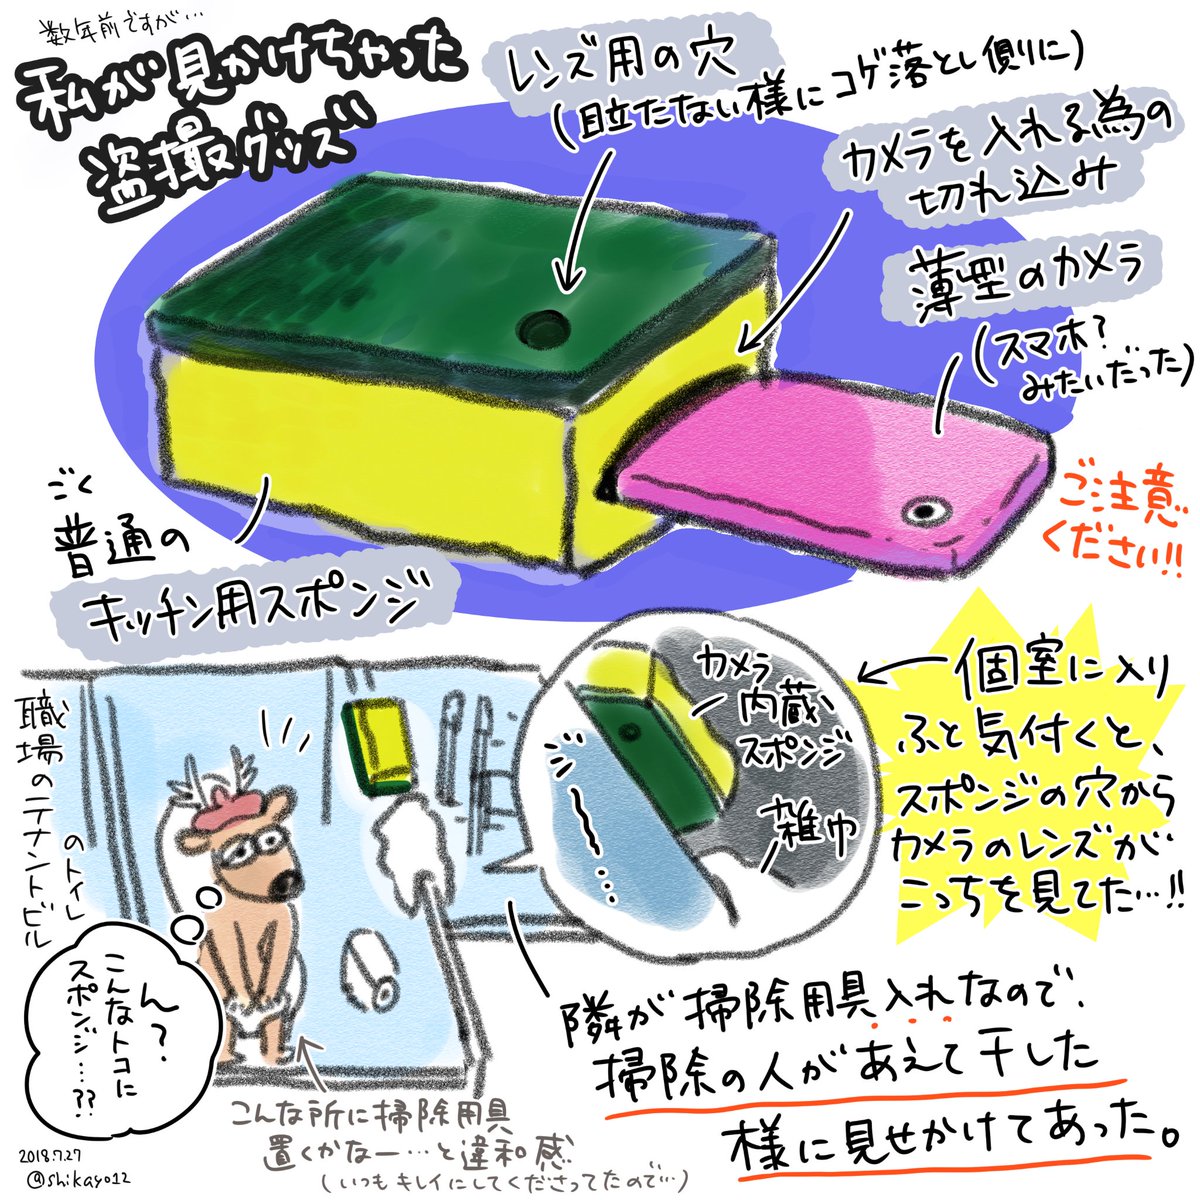 数年前ですが…
私が見かけちゃった
盗撮グッズ
レンズ用の穴
(目立たない様にコゲ落とし側りに)
カメラを入れる為の
切れ込み
薄型のカメラ
(スマホ?
みたいだった)
ご注意
ください!!
ごく
普通の
キッチン用スポンジ
職場のテナントビル
のトイレ
ん?
こんなトコに
スポンジ…??
カメラ
内蔵
スポンジ
雑巾
ジーーー…
個室に入り
ふと気付くと、
スポンジの穴から
カメラのレンズが
こっちを見てた…!!
隣が掃除用具入れなので、
掃除の人があえて干した
様に見せかけてあった。
こんな所に掃除用具
置くかなー…と違和感
(いつもキレイにしてくださってたので…)
2018.7.27
@shikayo12